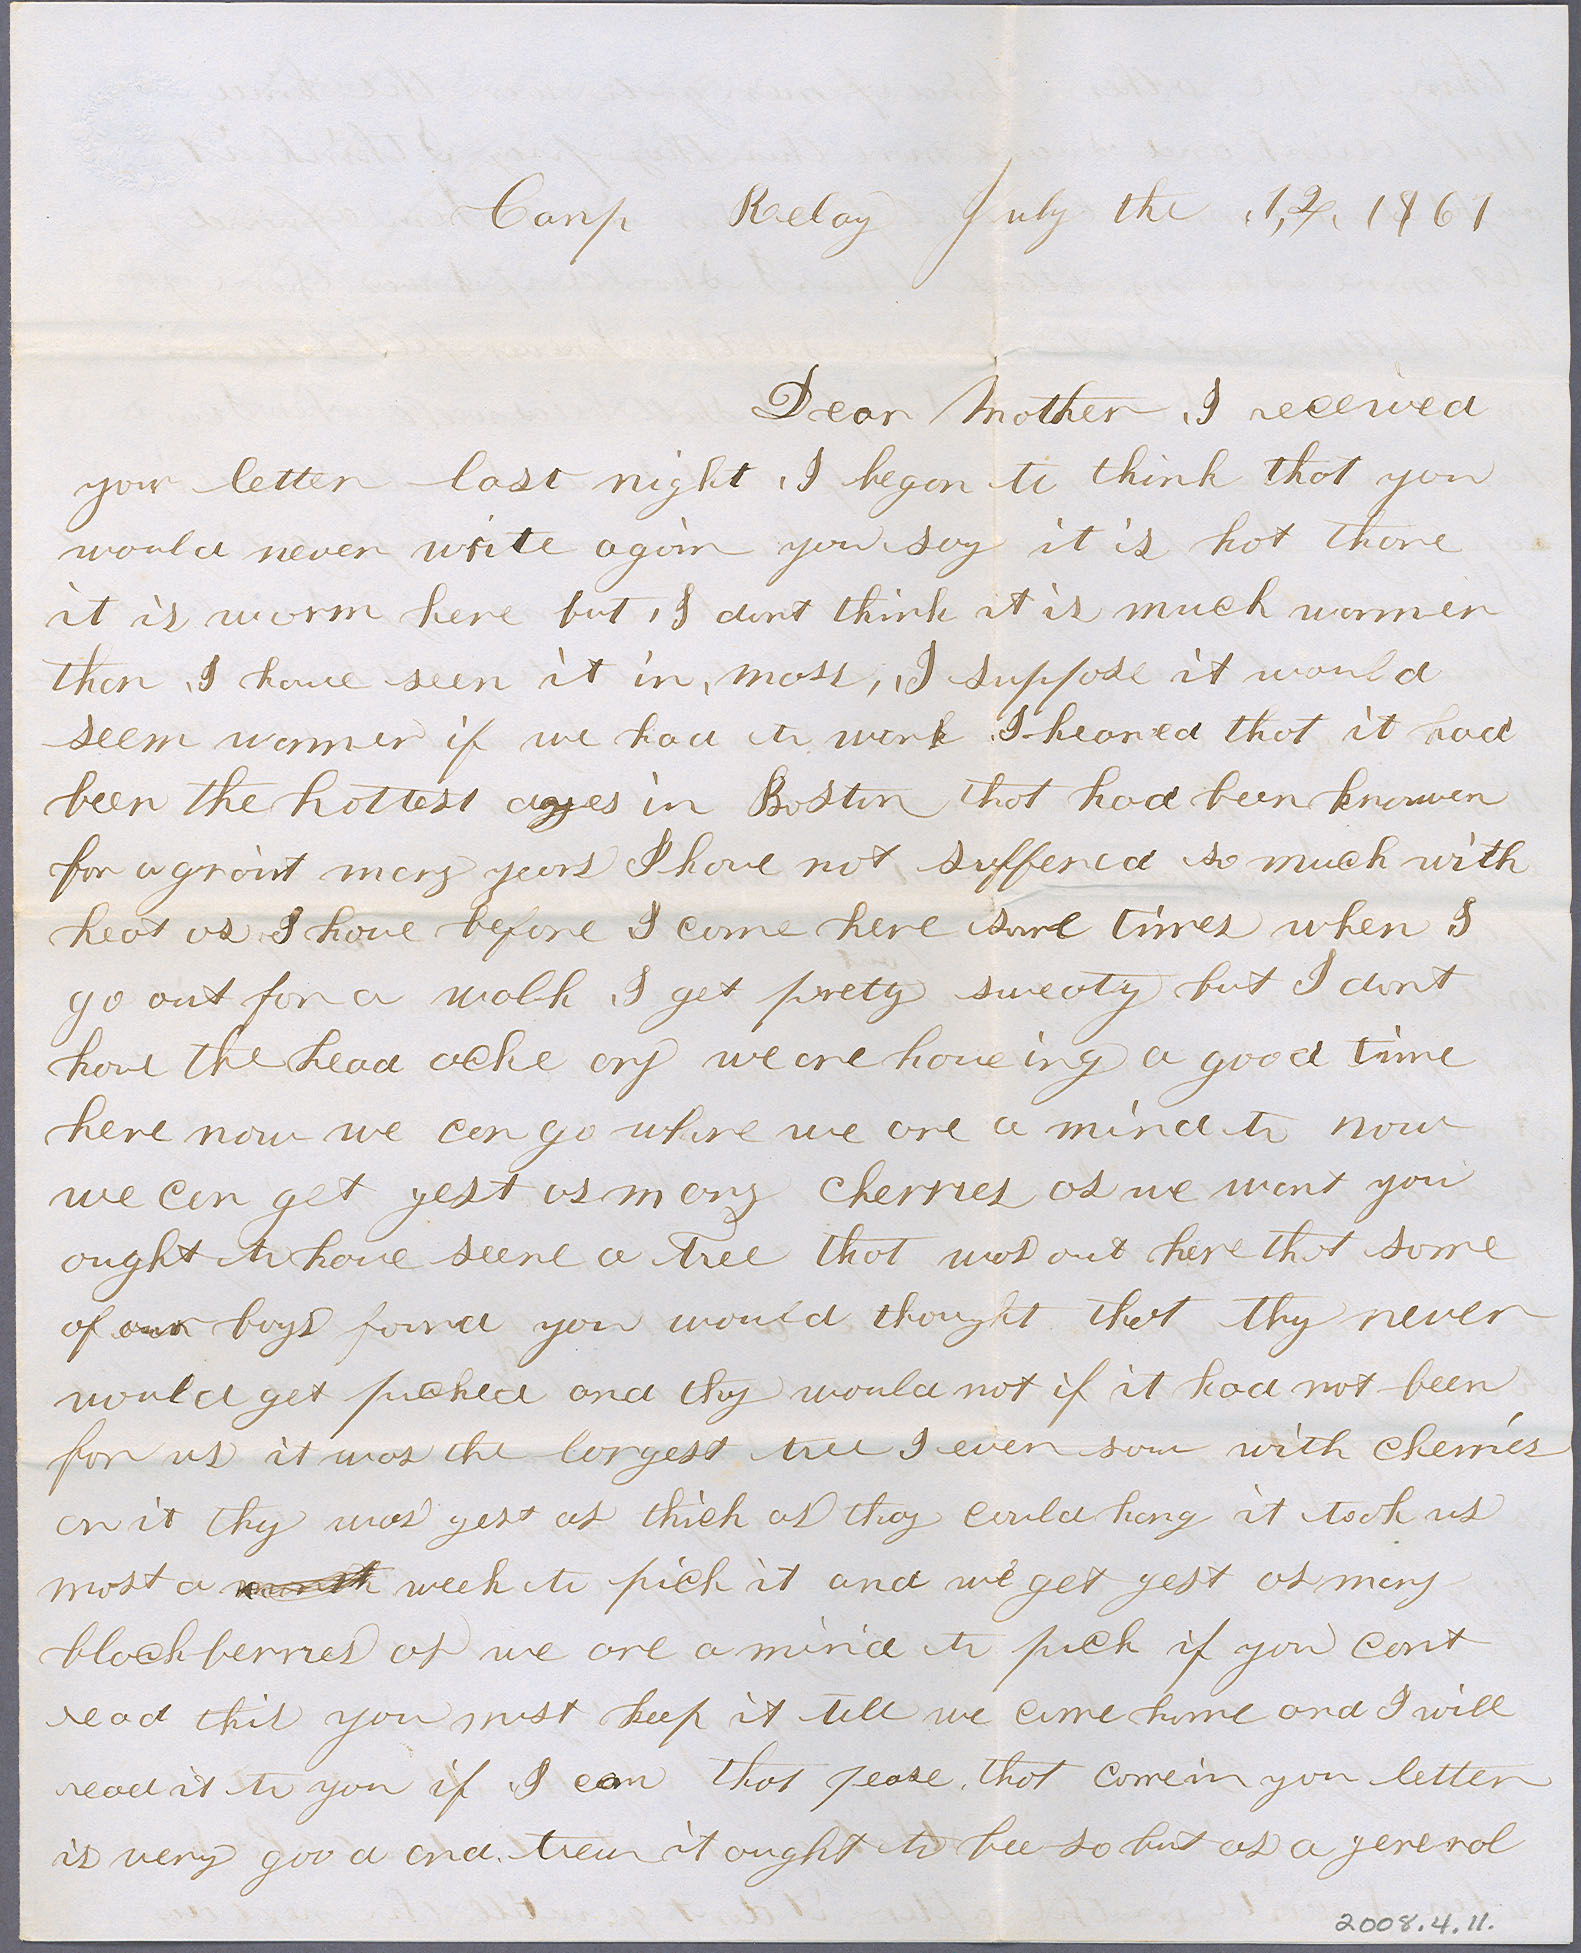 Camp Relay July the 12, 1861
Dear Mother I received
your letter last night I began to think that you
would never write again you say it is hot thare
it is warm here but I dont think it is much warmer
than I have seen it in, mass, I suppose it would
seem warmer if we had to work I heared that it had
been the hottest dayes in Boston that had been knowen
for a graint many years I have not suffered so much with
heat as I have before I come here some times when I
go out for a walk I get prety sweaty but I dont
have the head acke any we are haveing a good time
here now we can go where we are a mind to now
we can get yest as many cherries as we want you
ought to have seene a tree that was out here that some
of our boys found you would thought that thy never
would get picked and thy would not if it had not been
for us it was the largest tree I ever saw with cherries
on it thy was yest as thick as thay could hang it took us
most a month week to pick it and we get yest as many
blackberries as we are a mind to pick if you cant
read this you must keep it till we come home and I will
read it to you if I can that pease that come in you letter
is very good and. treu it ought to bee so but as a gereral
2008.4.11.